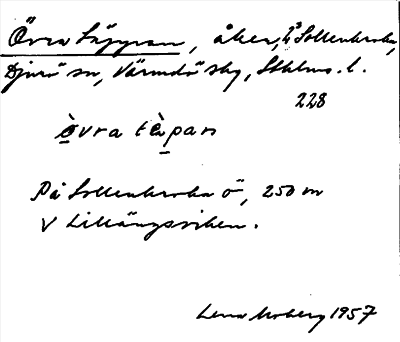 Övra Täppan, åker, Sollenkroka,
Djurö sn, Värmdö skg, Sthlms l.
228
òvra tèpan
På Sollenkroka ö, 250 m
V Lillängsviken.
Lena Moberg 1957